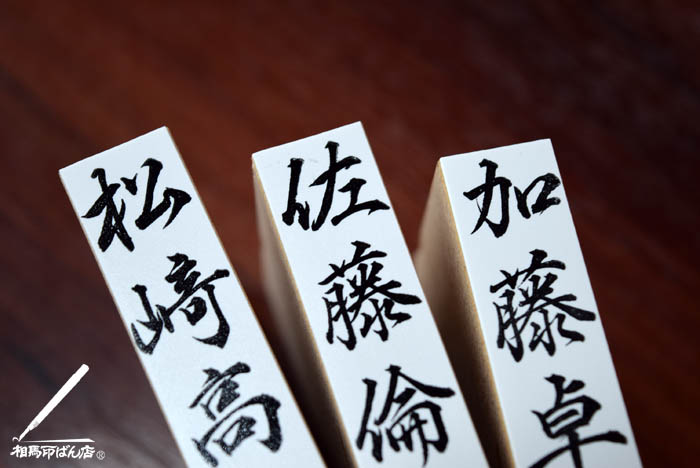 松崎高
佐藤倫
加藤卓
相馬印ばん店®